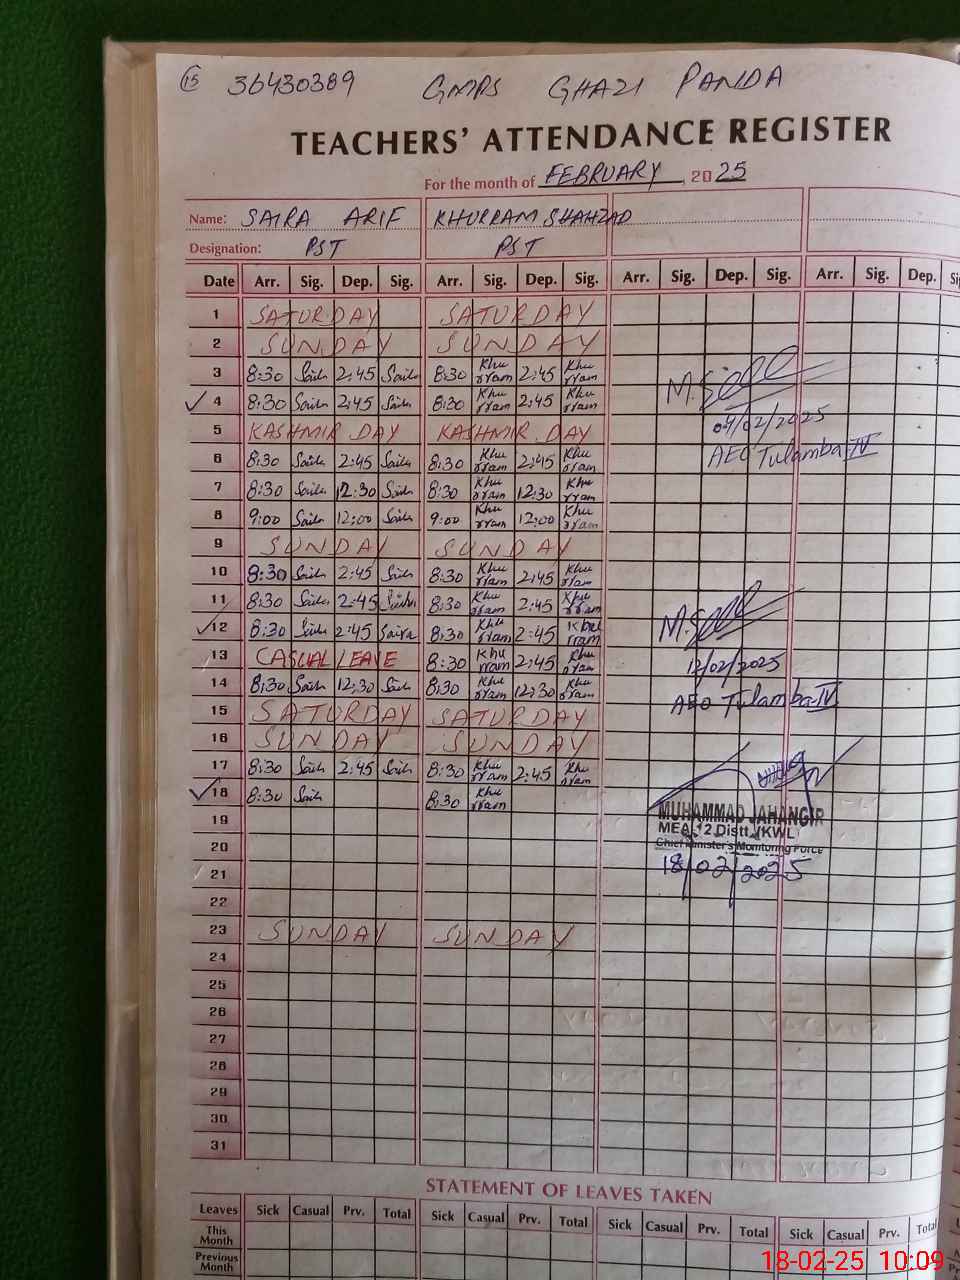 15 36430389 GMPS GHAZI PANDA
TEACHERS' ATTENDANCE REGISTER
For the month of FEBRUARY, 2025
Name: SAIRA ARIF KHURRAM SHAHZAD
Designation: PST PST
Date Arr. Sig. Dep. Sig. Arr. Sig. Dep. Sig. Arr. Sig. Dep. Sig. Arr. Sig. Dep.
1 SATURDAY SATURDAY
2 SUNDAY SUNDAY
3 8:30 2:45 8:30 Khurram 2:45 Khurram
4 8:30 2:45 8:30 Khurram 2:45 Khurram
04/02/2025
5 KASHMIR DAY KASHMIR DAY
AEO Tulamba IV
6 8:30 2:45 8:30 Khurram 2:45 Khurram
7 8:30 12:30 8:30 Khurram 12:30 Khurram
8 9:00 12:00 9:00 Khurram 12:00 Khurram
9 SUNDAY SUNDAY
10 8:30 2:45 8:30 Khurram 2:45 Khurram
11 8:30 2:45 8:30 Khurram 2:45 Khurram
12 8:30 2:45 Saira 8:30 Khurram 2:45 Khurram
13 CASUAL LEAVE 8:30 Khurram 2:45 Khurram
12/02/2025
14 8:30 12:30 8:30 Khurram 12:30 Khurram
AEO Tulamba-IV
15 SATURDAY SATURDAY
16 SUNDAY SUNDAY
17 8:30 2:45 8:30 Khurram 2:45 Khurram
18 8:30 8:30 Khurram
MUHAMMAD JAHANGIR
19
MEA-12 Distt. (KWL)
20
Chief Minister's Monitoring Force
18/02/2025
21
22
23 SUNDAY SUNDAY
24
25
26
27
28
29
30
31
STATEMENT OF LEAVES TAKEN
Leaves Sick Casual Prv. Total Sick Casual Prv. Total Sick Casual Prv. Total Sick Casual Prv. Total
This Month
Previous Month
18-02-25 10:09